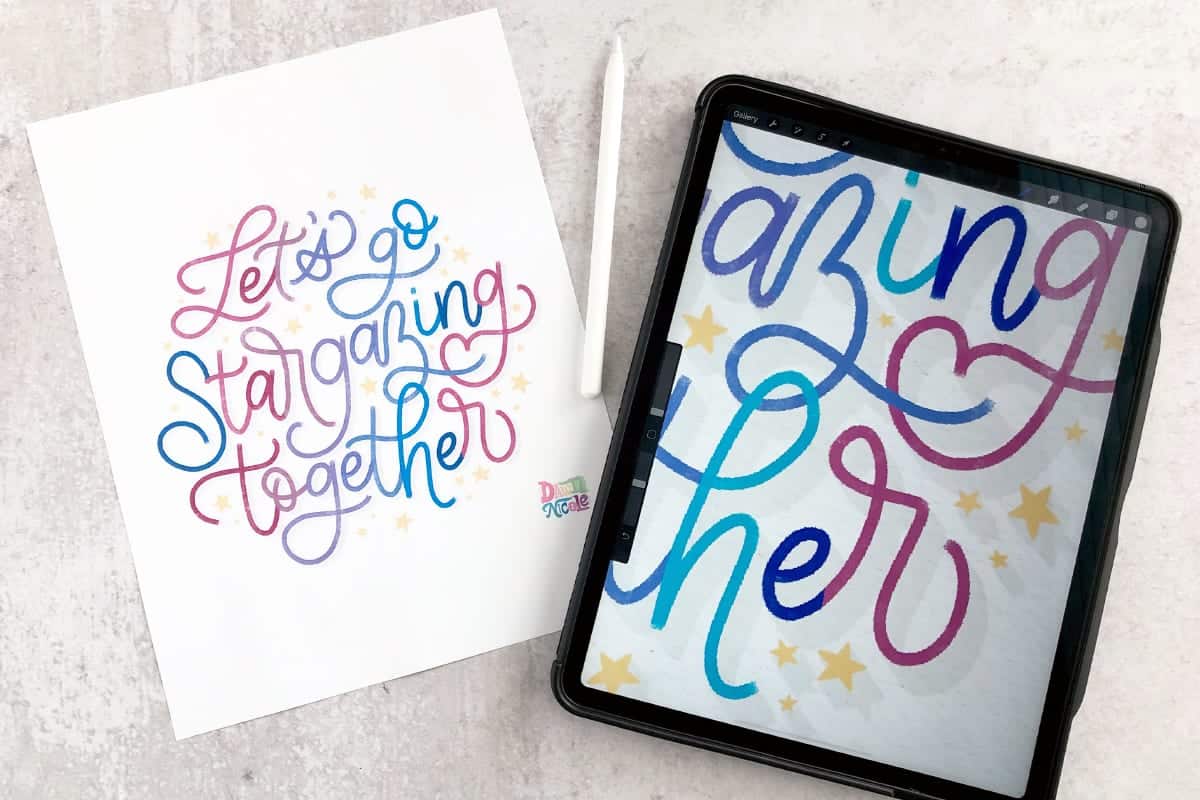 Let's go
Stargazing
together
Dawn
Nicole
Gallery
azing
her